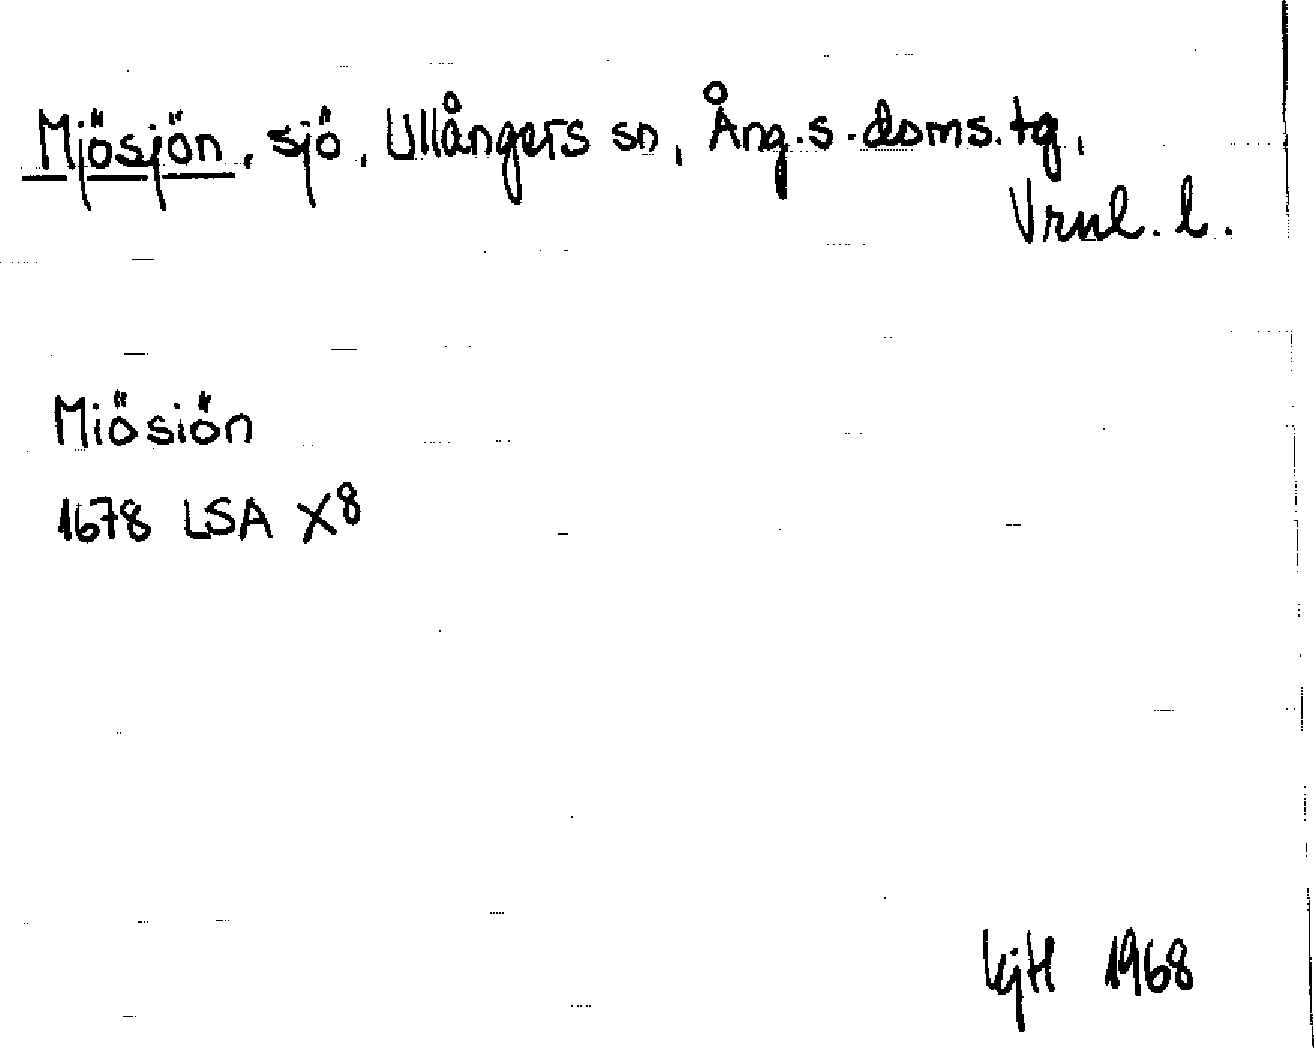 Mjösjön, sjö, Ullångers sn, Ång.s.doms.tg,
Vrnl. l.
Miösiön
1678 LSA X8
KjH 1968